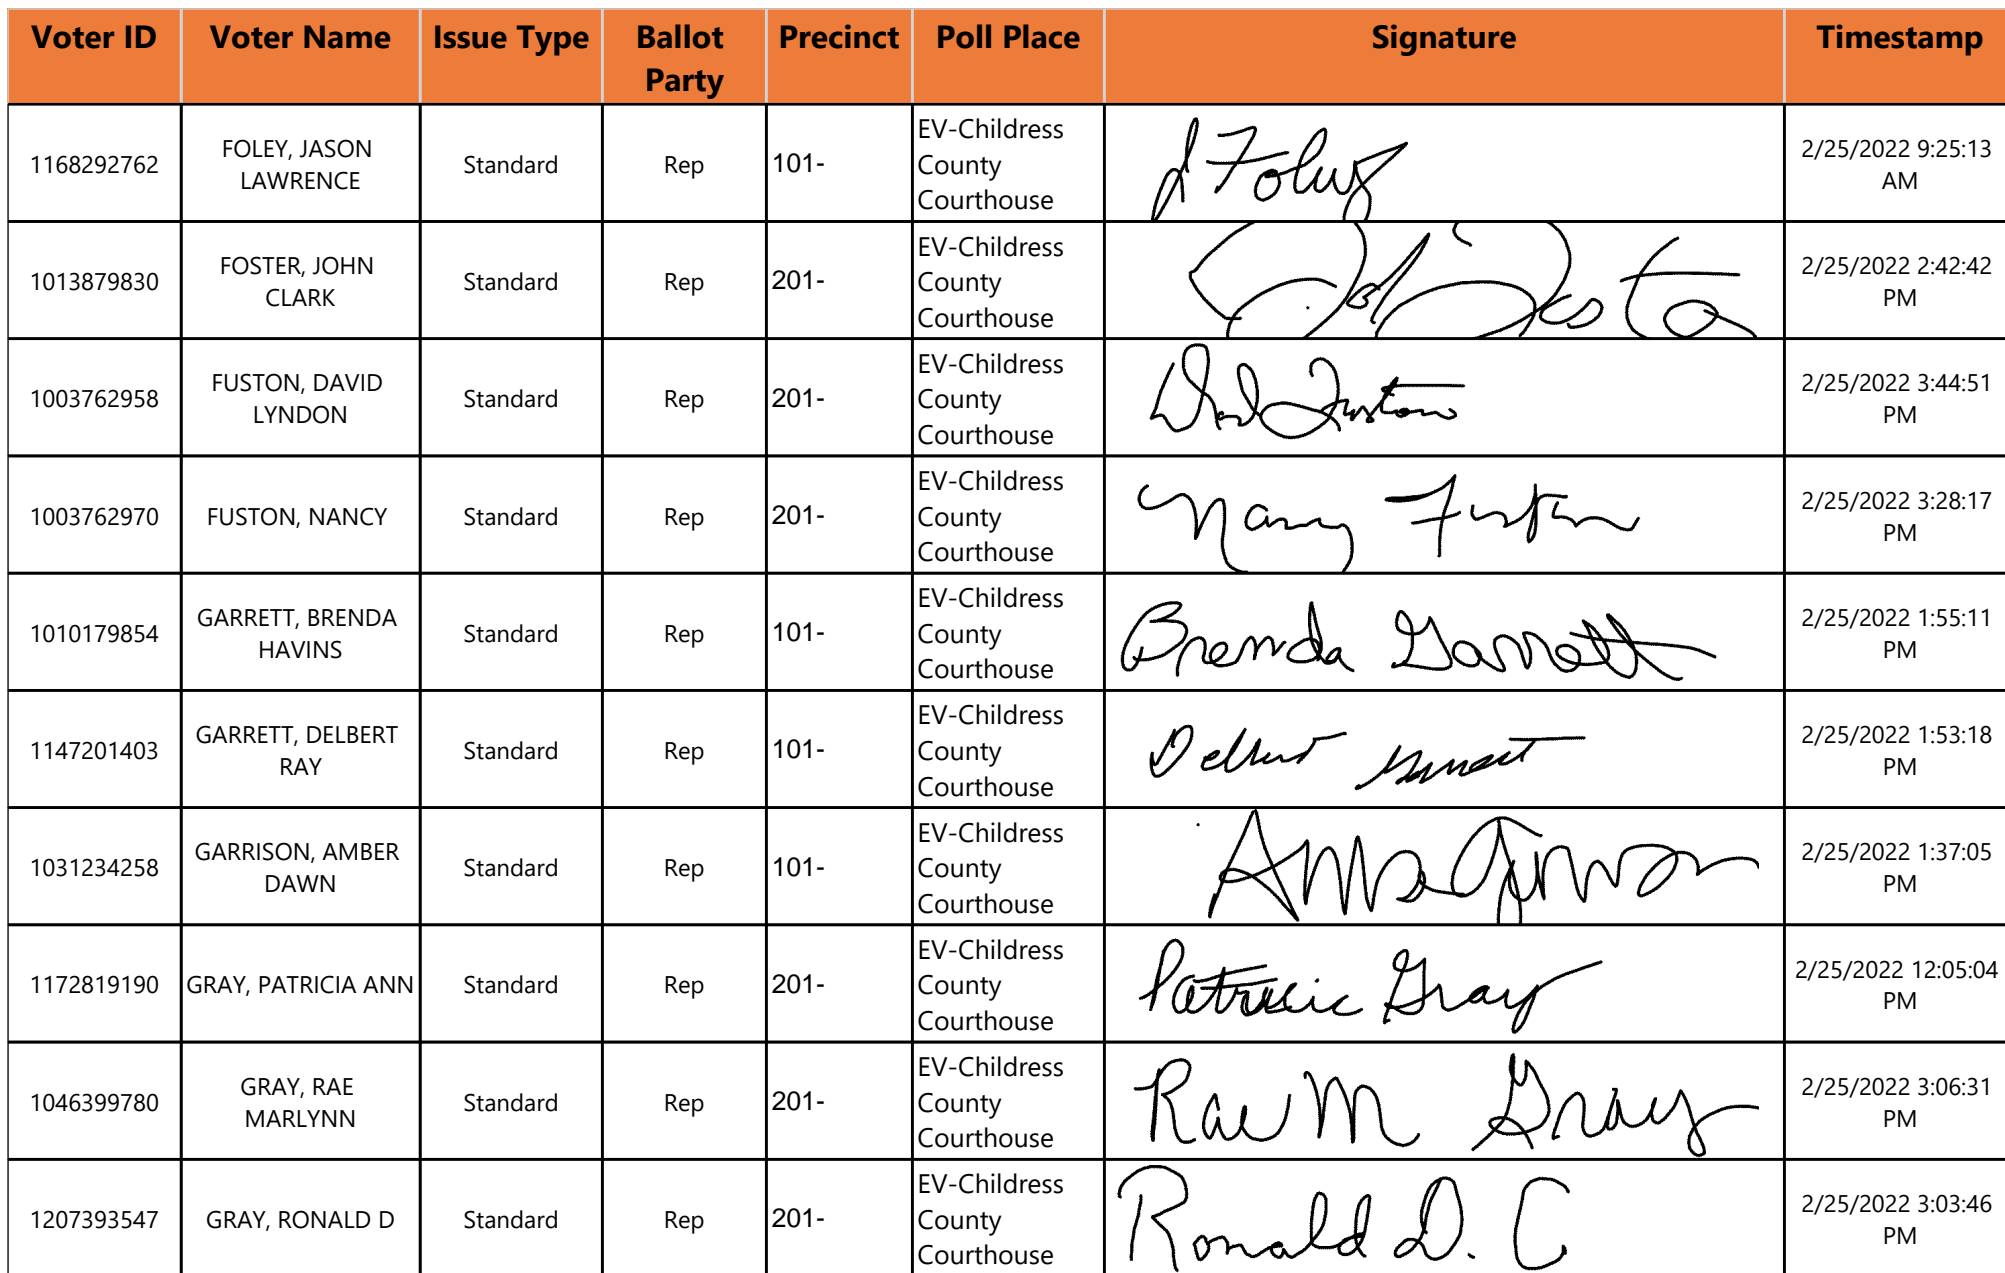 Voter ID Voter Name Issue Type Ballot Party Precinct Poll Place Signature Timestamp
1168292762 FOLEY, JASON LAWRENCE Standard Rep 101- EV-Childress County Courthouse J Foley 2/25/2022 9:25:13 AM
1013879830 FOSTER, JOHN CLARK Standard Rep 201- EV-Childress County Courthouse 2/25/2022 2:42:42 PM
1003762958 FUSTON, DAVID LYNDON Standard Rep 201- EV-Childress County Courthouse David Fuston 2/25/2022 3:44:51 PM
1003762970 FUSTON, NANCY Standard Rep 201- EV-Childress County Courthouse Nancy Fuston 2/25/2022 3:28:17 PM
1010179854 GARRETT, BRENDA HAVINS Standard Rep 101- EV-Childress County Courthouse Brenda Garrett 2/25/2022 1:55:11 PM
1147201403 GARRETT, DELBERT RAY Standard Rep 101- EV-Childress County Courthouse Delbert Garrett 2/25/2022 1:53:18 PM
1031234258 GARRISON, AMBER DAWN Standard Rep 101- EV-Childress County Courthouse 2/25/2022 1:37:05 PM
1172819190 GRAY, PATRICIA ANN Standard Rep 201- EV-Childress County Courthouse Patricia Gray 2/25/2022 12:05:04 PM
1046399780 GRAY, RAE MARLYNN Standard Rep 201- EV-Childress County Courthouse Rae M Gray 2/25/2022 3:06:31 PM
1207393547 GRAY, RONALD D Standard Rep 201- EV-Childress County Courthouse Ronald D. G 2/25/2022 3:03:46 PM